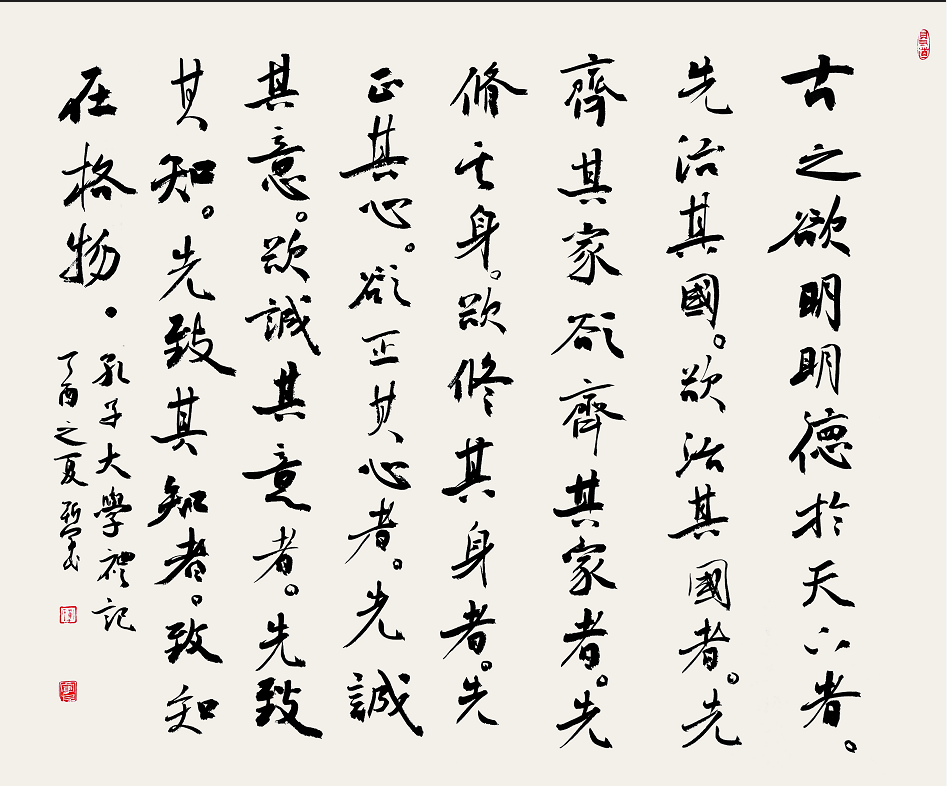 古之欲明明德於天下者。
先治其國。欲治其國者。先
齊其家欲齊其家者。先
脩其身。欲修其身者。先
正其心。欲正其心者。先誠
其意。欲誠其意者。先致
其知。先致其知者。致知
在格物.
孔子大學禮記
丁酉之夏